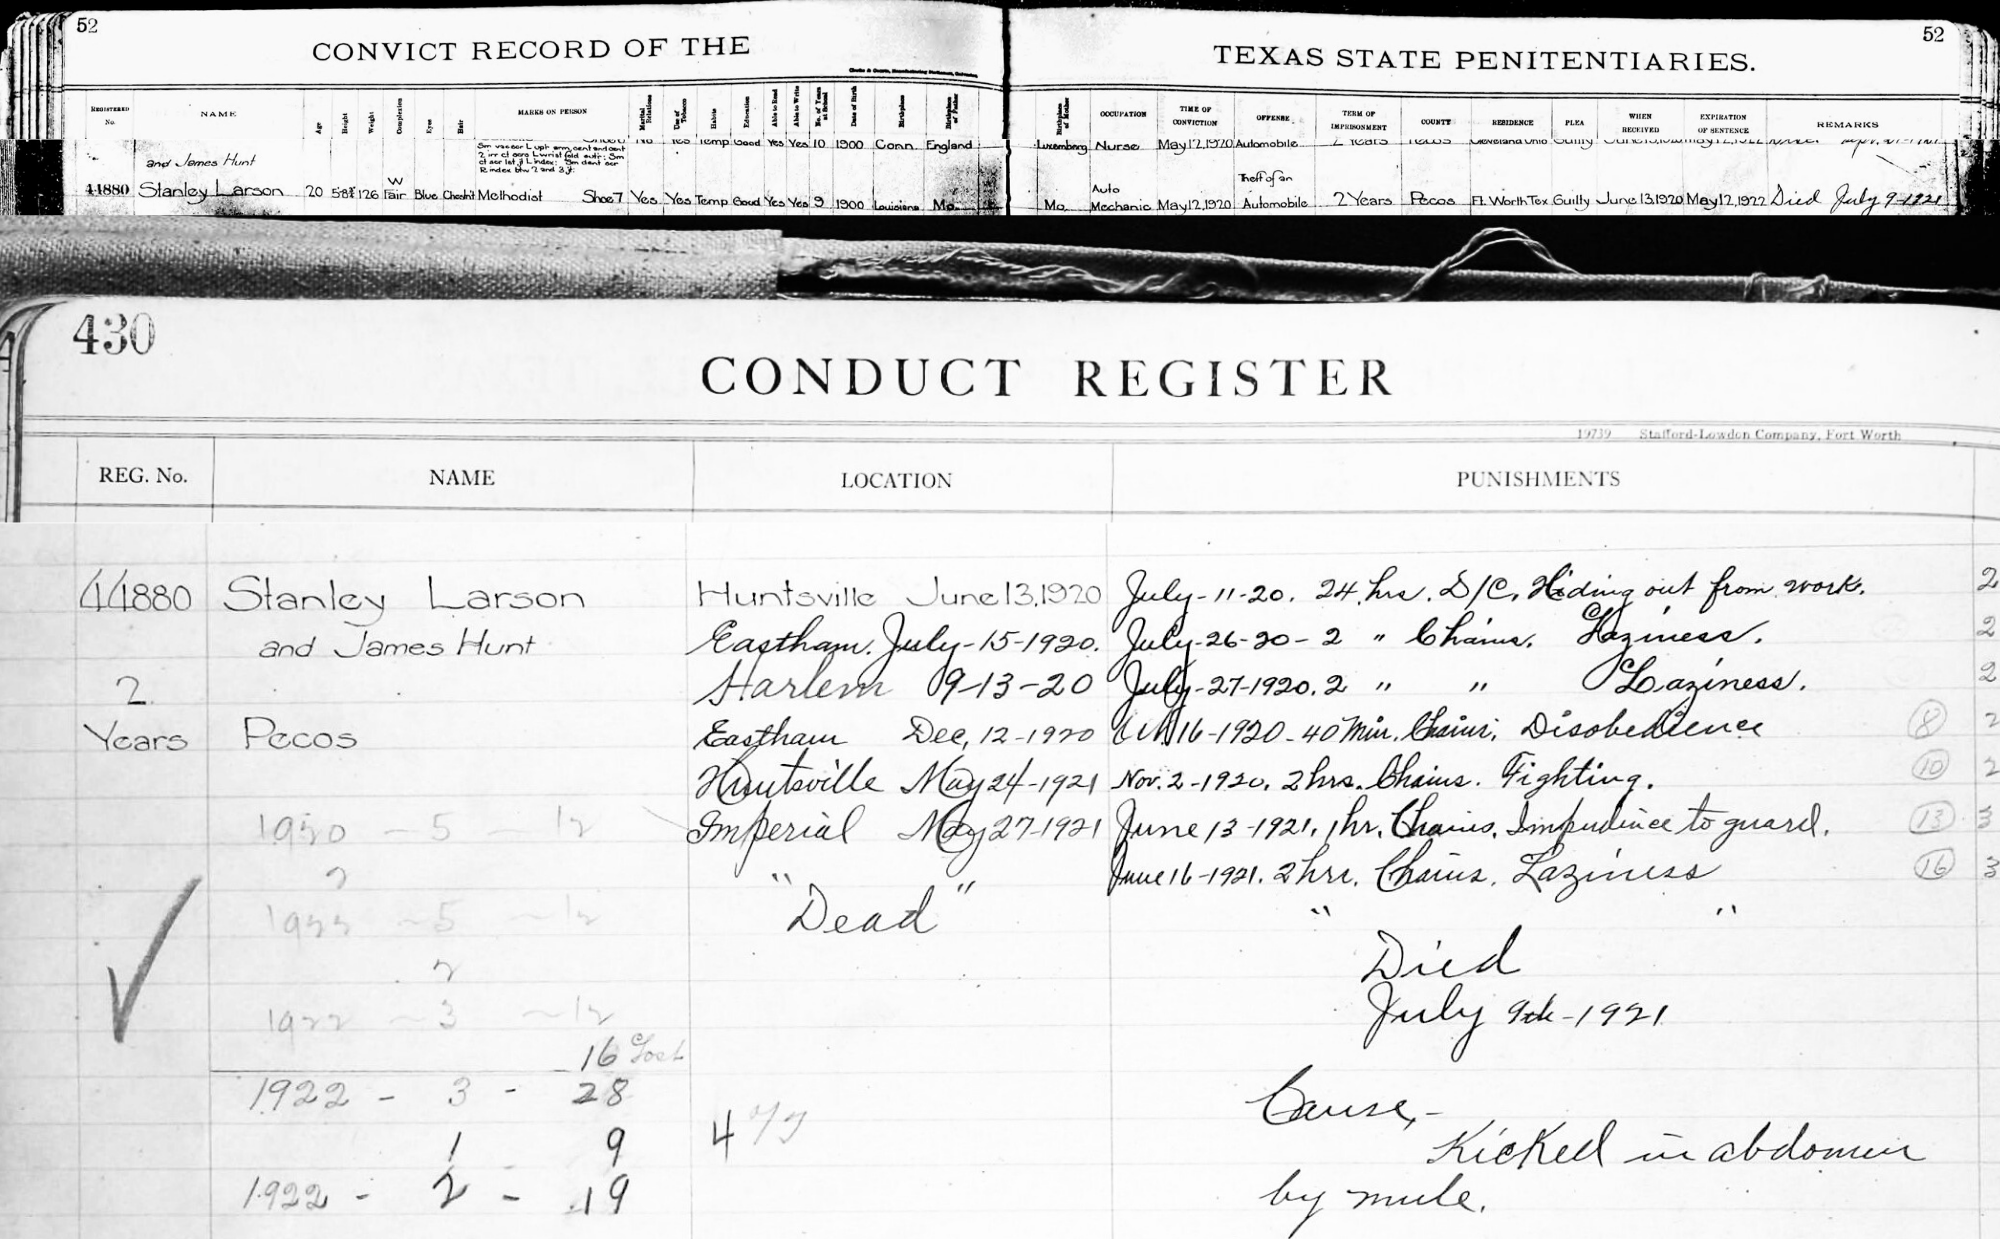 52
52
CONVICT RECORD OF THE
TEXAS STATE PENITENTIARIES.
REGISTERED No. NAME Age Height Weight Complexion Eyes Hair MARKS ON PERSON Marital Relations Use of Tobacco Habits Education Able to Read Able to Write No. of Years at School Date of Birth Birthplace Birthplace of Father Birthplace of Mother OCCUPATION TIME OF CONVICTION OFFENSE TERM OF IMPRISONMENT COUNTY RESIDENCE PLEA WHEN RECEIVED EXPIRATION OF SENTENCE REMARKS
No Yes Temp Good Yes Yes 10 1900 Conn. England Luxemberg Nurse May 12, 1920 Automobile 2 Years Pecos Cleveland Ohio Guilty
and James Hunt
W
Theft of an
Auto
44880 Stanley Larson 20 126 Fair Blue Chestnt Methodist Shoe 7 Yes Yes Temp Good Yes Yes 9 1900 Louisiana Mo. Mo. Mechanic May 12, 1920 Automobile 2 Years Pecos Ft. Worth Tex Guilty June 13, 1920 May 12, 1922 Died July 9-1921
430
CONDUCT REGISTER
19739 Stafford-Lowdon Company, Fort Worth
REG. No. NAME LOCATION PUNISHMENTS
44880 Stanley Larson Huntsville June 13, 1920 July-11-20. 24 hrs. D/C. Hiding out from work. 2
and James Hunt Eastham. July-15-1920. July-26-20-2 " Chains. Laziness. 2
2 Harlem 9-13-20 July-27-1920. 2 " " Laziness. 2
Years Pecos Eastham Dec, 12-1920 16-1920-40 Min. Chains. Disobedience 8 2
Huntsville May 24-1921 Nov. 2-1920. 2 hrs. Chains. Fighting. 10 2
1920 - 5 - 12 Imperial May 27-1921 June 13-1921. 1 hr. Chains. Impudince to guard. 13 3
2 June 16-1921. 2 hrs. Chains. Laziness 16 3
1922 - 5 - 12 "Dead" " "
2 Died
1922 - 3 - 12 July 9th-1921
16 Lost
1922 - 3 - 28 Cause,-
4
1 9 Kicked in abdomen
1922 - 2 - 19 by mule.